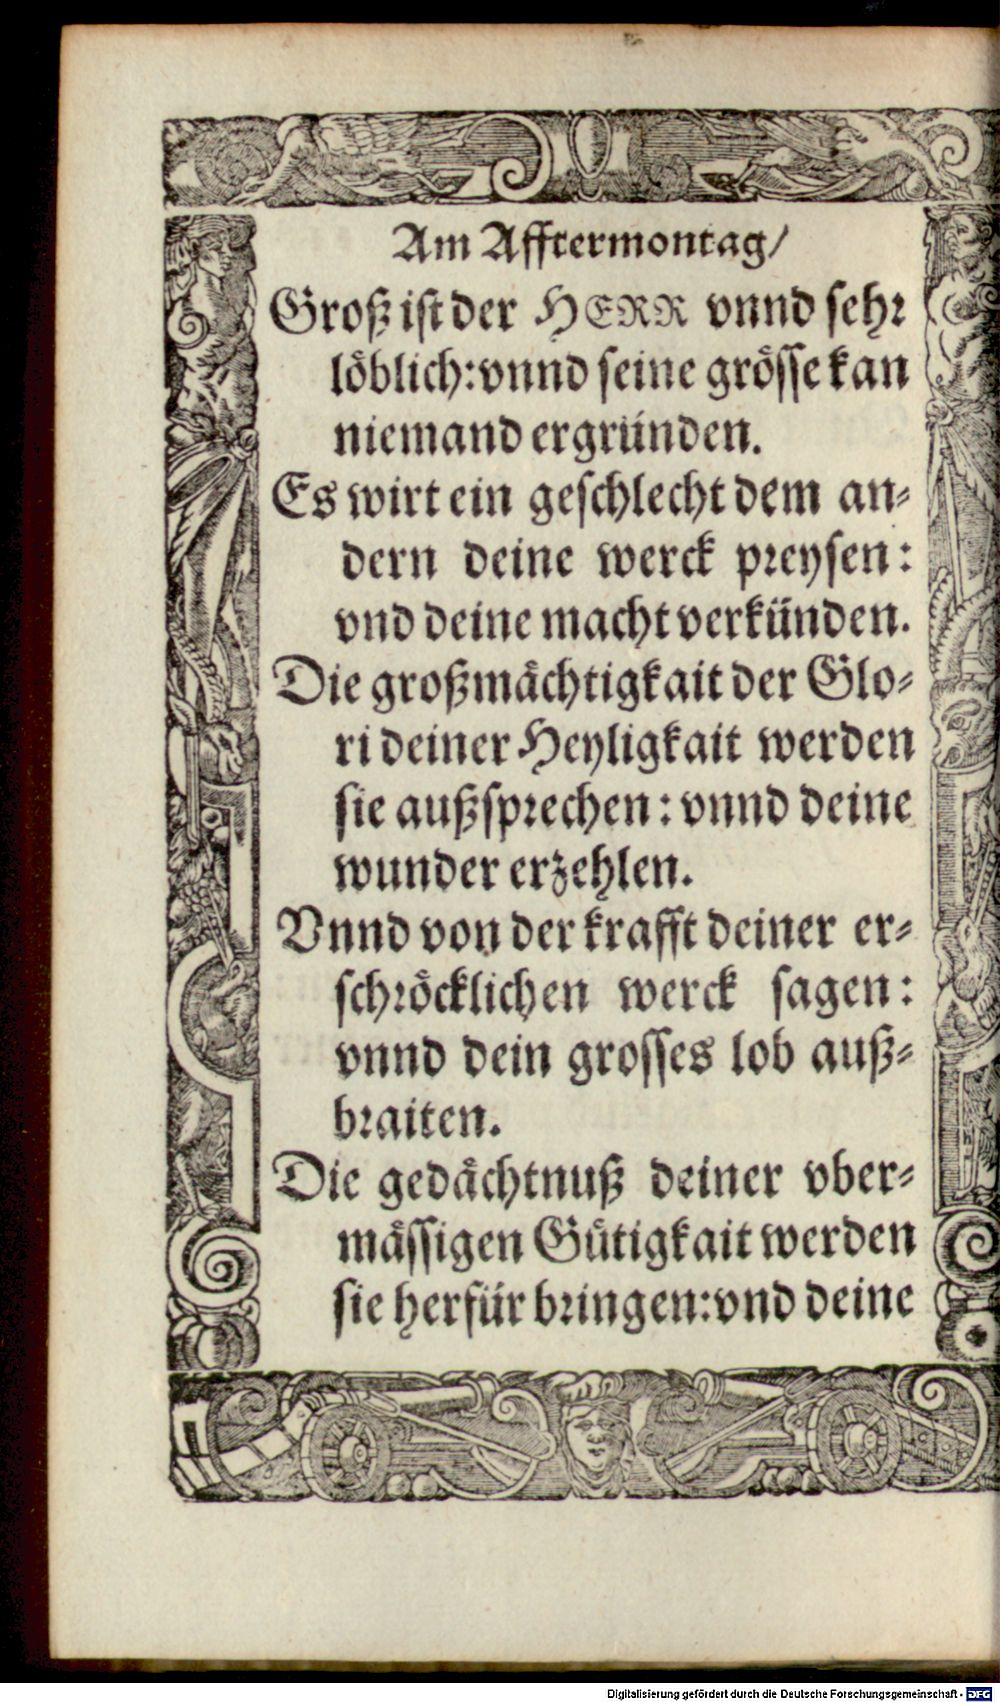 Am Afftermontag/
Groß ist der HERR vnnd sehr
löblich: vnnd seine grösse kan
niemand ergründen.
Es wirt ein geschlecht dem an⸗
dern deine werck preysen:
vnd deine macht verkünden.
Die großmächtigkait der Glo⸗
ri deiner Heyligkait werden
sie außsprechen: vnnd deine
wunder erzehlen.
Vnnd von der krafft deiner er⸗
schröcklichen werck sagen:
vnnd dein grosses lob auß⸗
braiten.
Die gedächtnuß deiner vber⸗
mässigen Gütigkait werden
sie herfür bringen: vnd deine
Digitalisierung gefördert durch die Deutsche Forschungsgemeinschaft - DFG